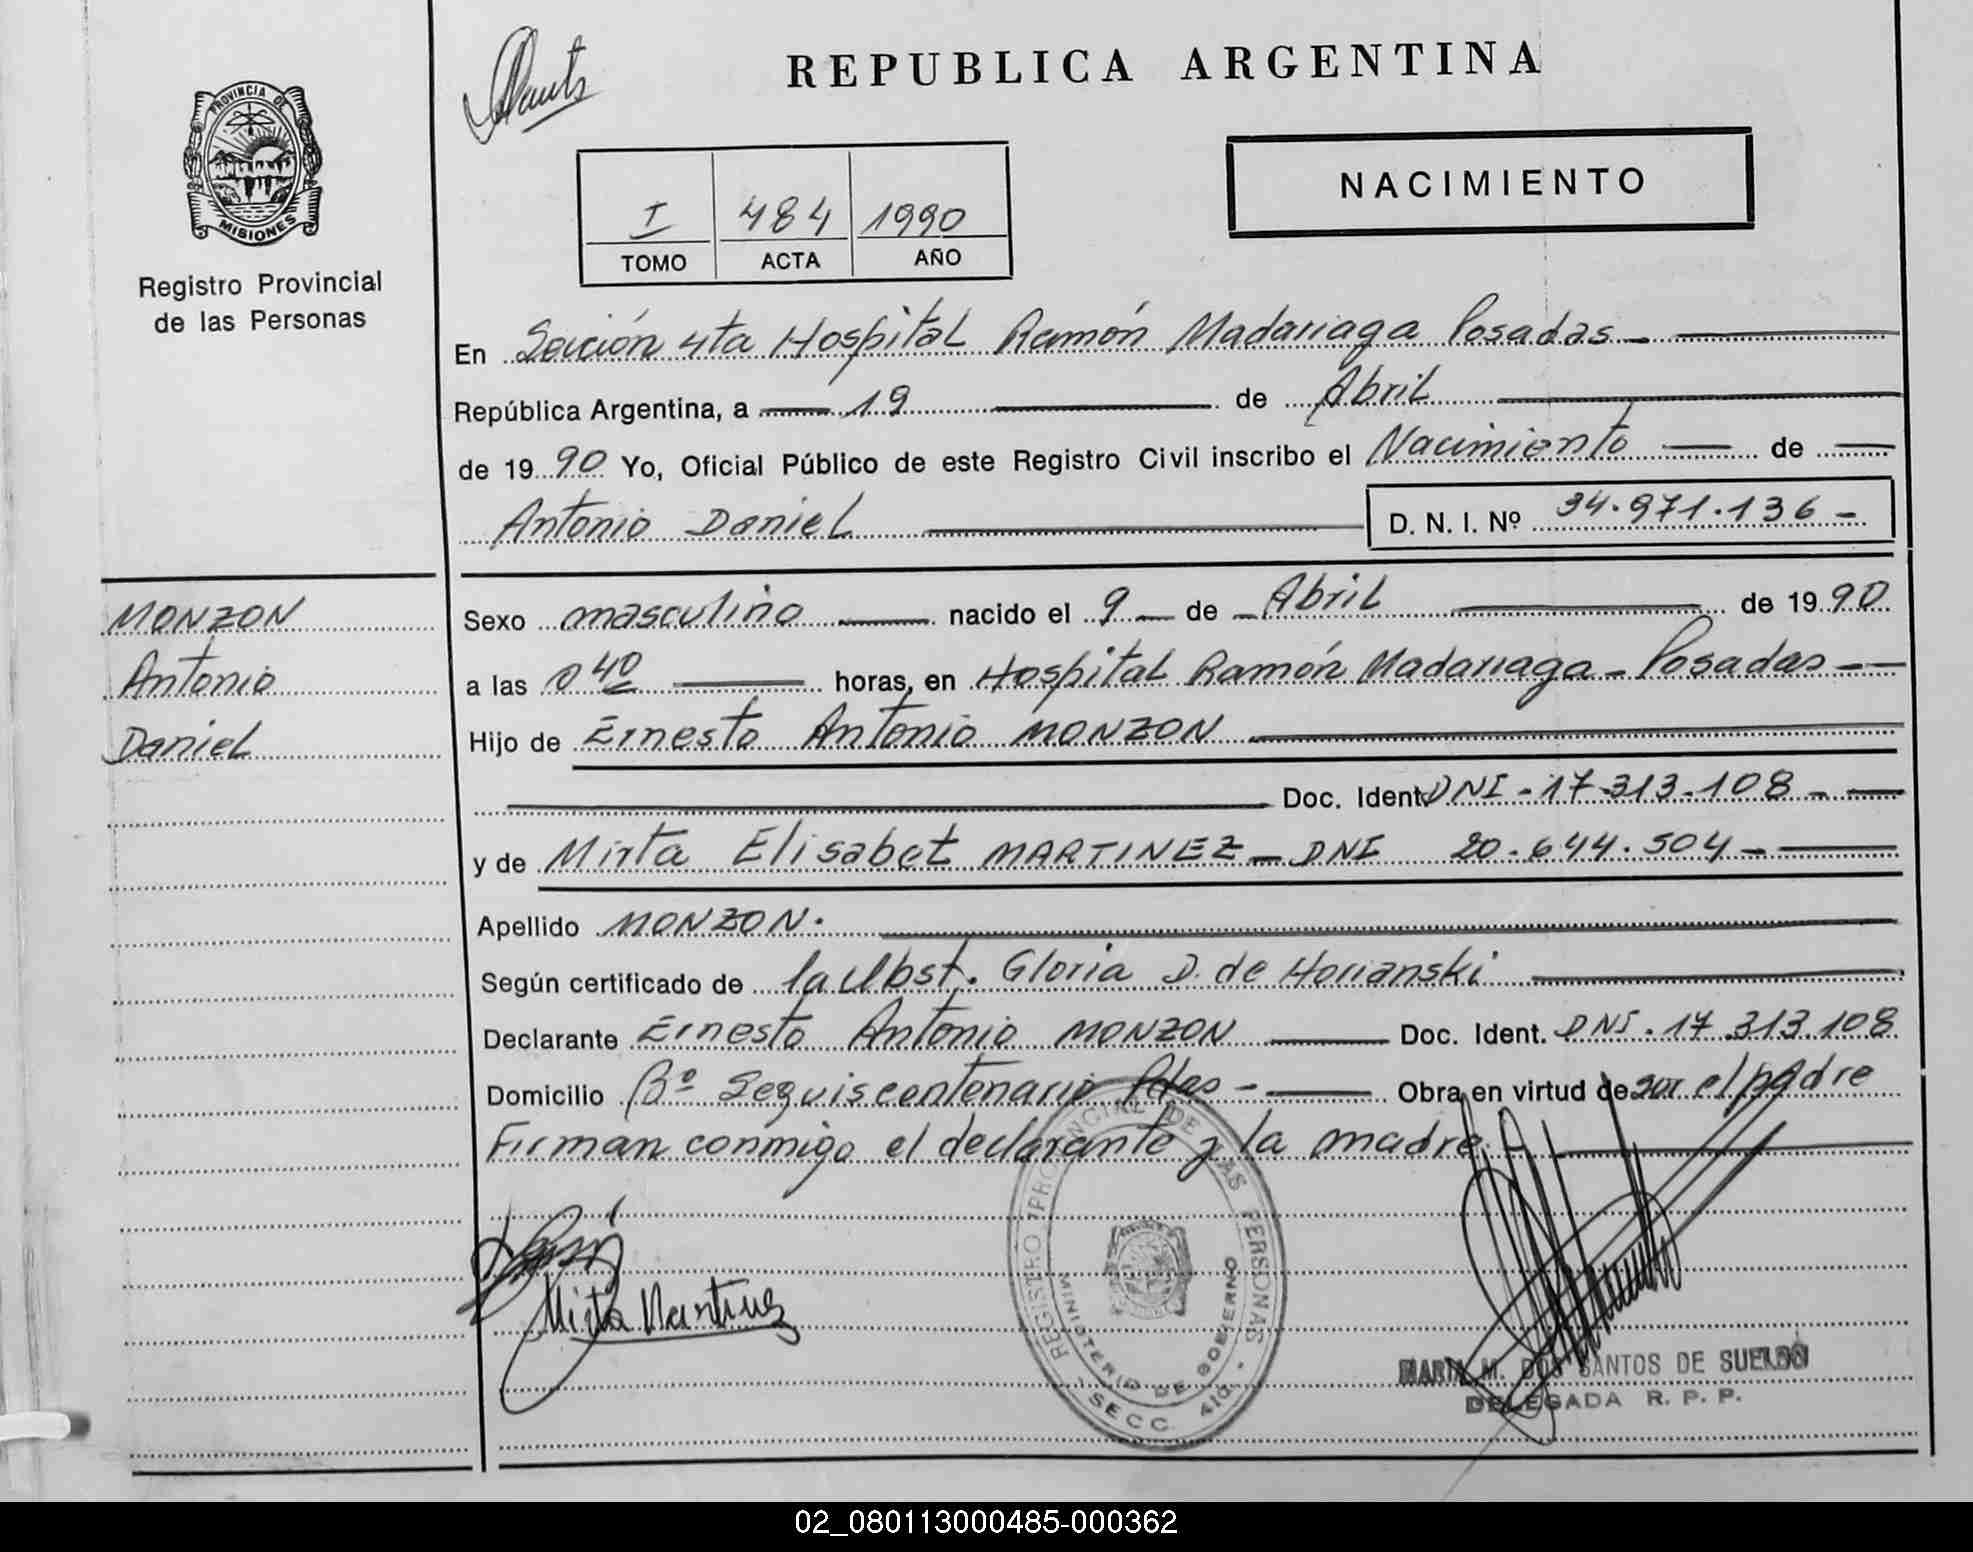 REPUBLICA ARGENTINA
PROVINCIA DE
MISIONES
Registro Provincial
de las Personas
NACIMIENTO
I 484 1990
TOMO ACTA AÑO
En Sección 4ta Hospital Ramón Madariaga Posadas
República Argentina, a 19 de Abril
de 1990 Yo, Oficial Público de este Registro Civil inscribo el Nacimiento de
Antonio Daniel D. N. I. Nº 34.971.136
MONZON
Antonio
Daniel
Sexo masculino nacido el 9 de Abril de 1990
a las 0 40 horas, en Hospital Ramón Madariaga - Posadas
Hijo de Ernesto Antonio MONZON
Doc. Ident. DNI - 17.313.108
y de Mirta Elisabet MARTINEZ - DNI 20.644.504
Apellido MONZON.
Según certificado de la Obst. Gloria D. de Horianski
Declarante Ernesto Antonio MONZON Doc. Ident. DNI. 17.313.108
Domicilio Bº Sequiscentenario Pdas - Obra en virtud de ser el padre
Firman conmigo el declarante y la madre.
Mirta Martinez
REGISTRO PROVINCIAL DE LAS PERSONAS
MINISTERIO DE GOBIERNO
SECC. 4ta.
MARIA M. DOS SANTOS DE SUELDO
DELEGADA R. P. P.
02_080113000485-000362